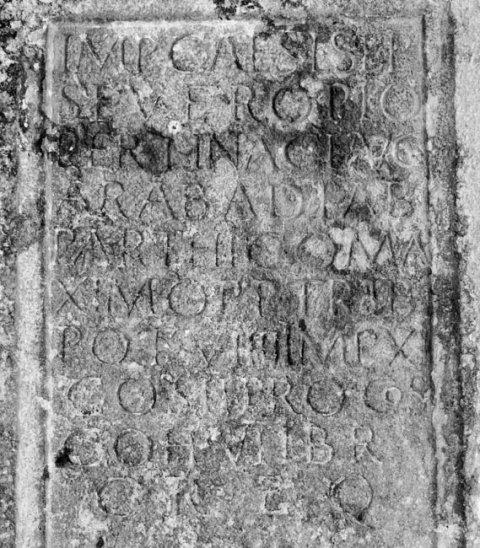 IMP CAES L SEP
SEVERO PIO
PERTINACI AVG
ARAB ADIAB
PARTHICO MA
XIMO P P TRIB
POT VIIII IMP X
COS II PROCOS
COH VII BR
EQ